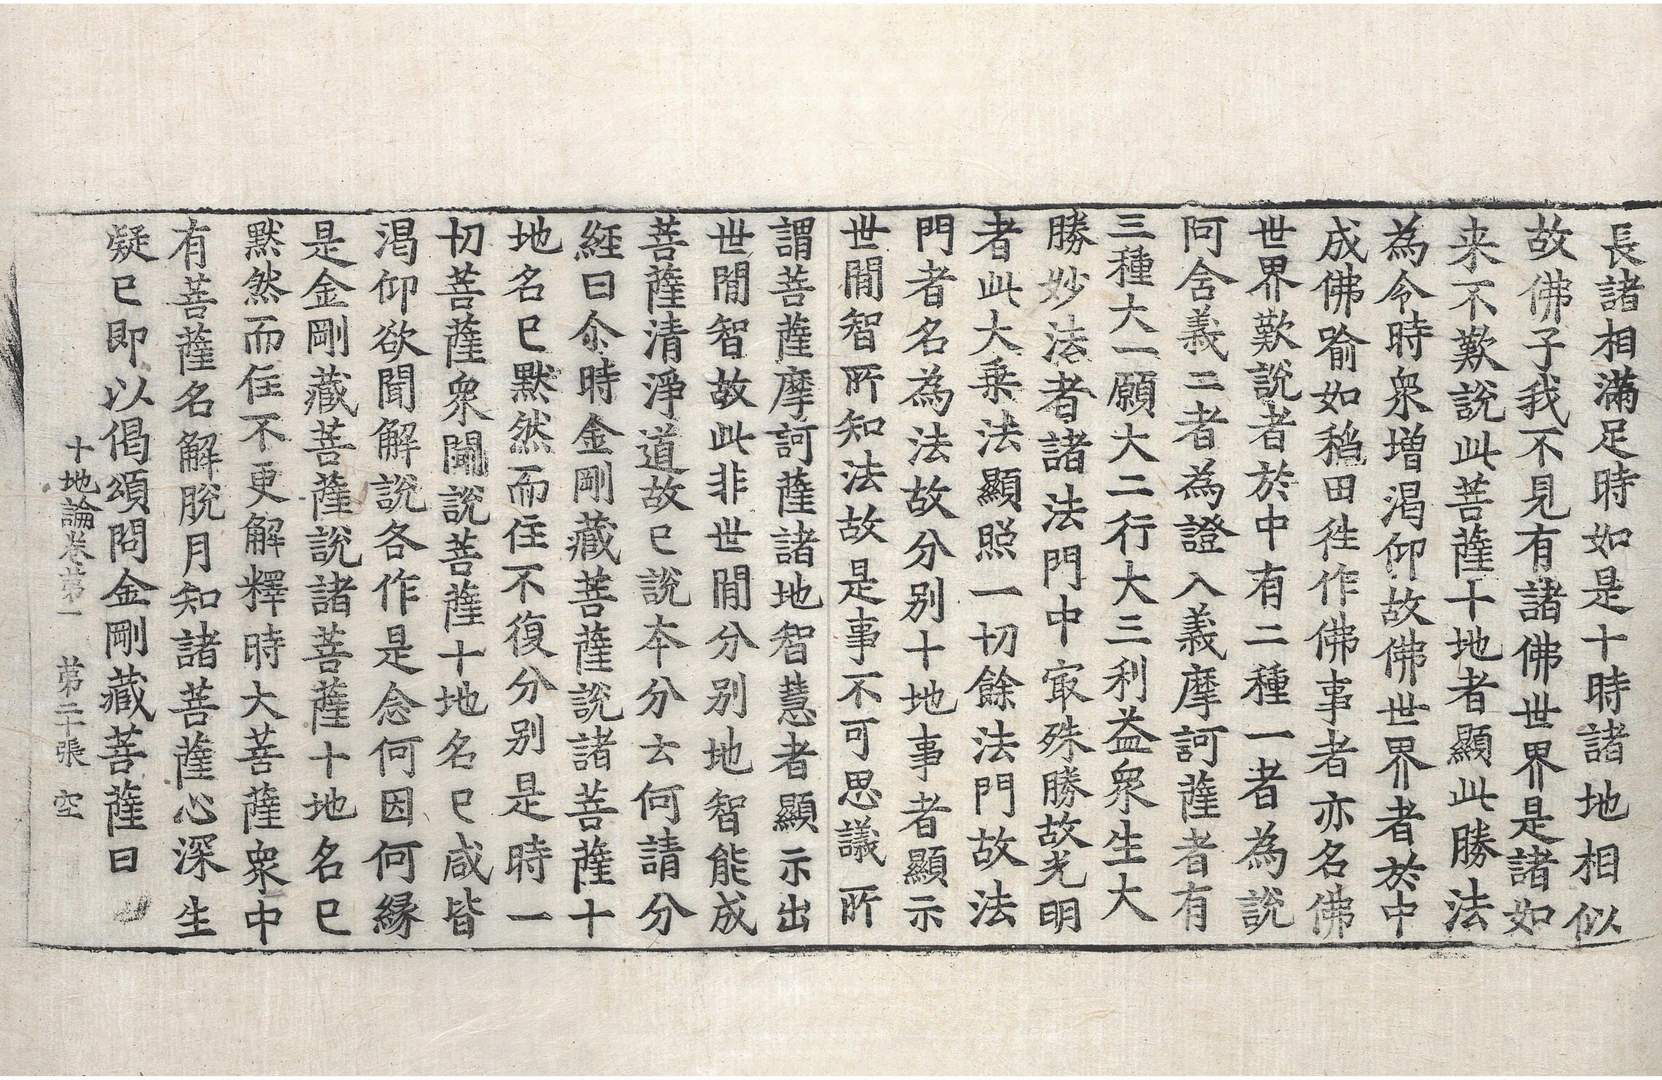 長諸相滿足時如是十時諸地相似
故佛子我不見有諸佛世界是諸如
来不歎說此菩薩十地者顯此勝法
為令時衆增渇仰故佛世界者於中
成佛喻如稻田徃作佛事者亦名佛
世界歎說者於中有二種一者為說
阿含義二者為證入義摩訶薩者有
三種大一願大二行大三利益衆生大
勝妙法者諸法門中㝡殊勝故光明
者此大乗法顯照一切餘法門故法
門者名為法故分別十地事者顯示
世間智所知法故是事不可思議所
謂菩薩摩訶薩諸地智慧者顯示出
世間智故此非世間分別地智能成
菩薩清淨道故已說本分云何請分
經曰尒時金剛藏菩薩說諸菩薩十
地名已默然而住不復分別是時一
切菩薩衆聞說菩薩十地名已咸皆
渇仰欲聞解說各作是念何因何緣
是金剛藏菩薩說諸菩薩十地名已
默然而住不更解釋時大菩薩衆中
有菩薩名解脫月知諸菩薩心深生
疑已即以偈頌問金剛藏菩薩曰
十地論卷苐一　苐二十張　空